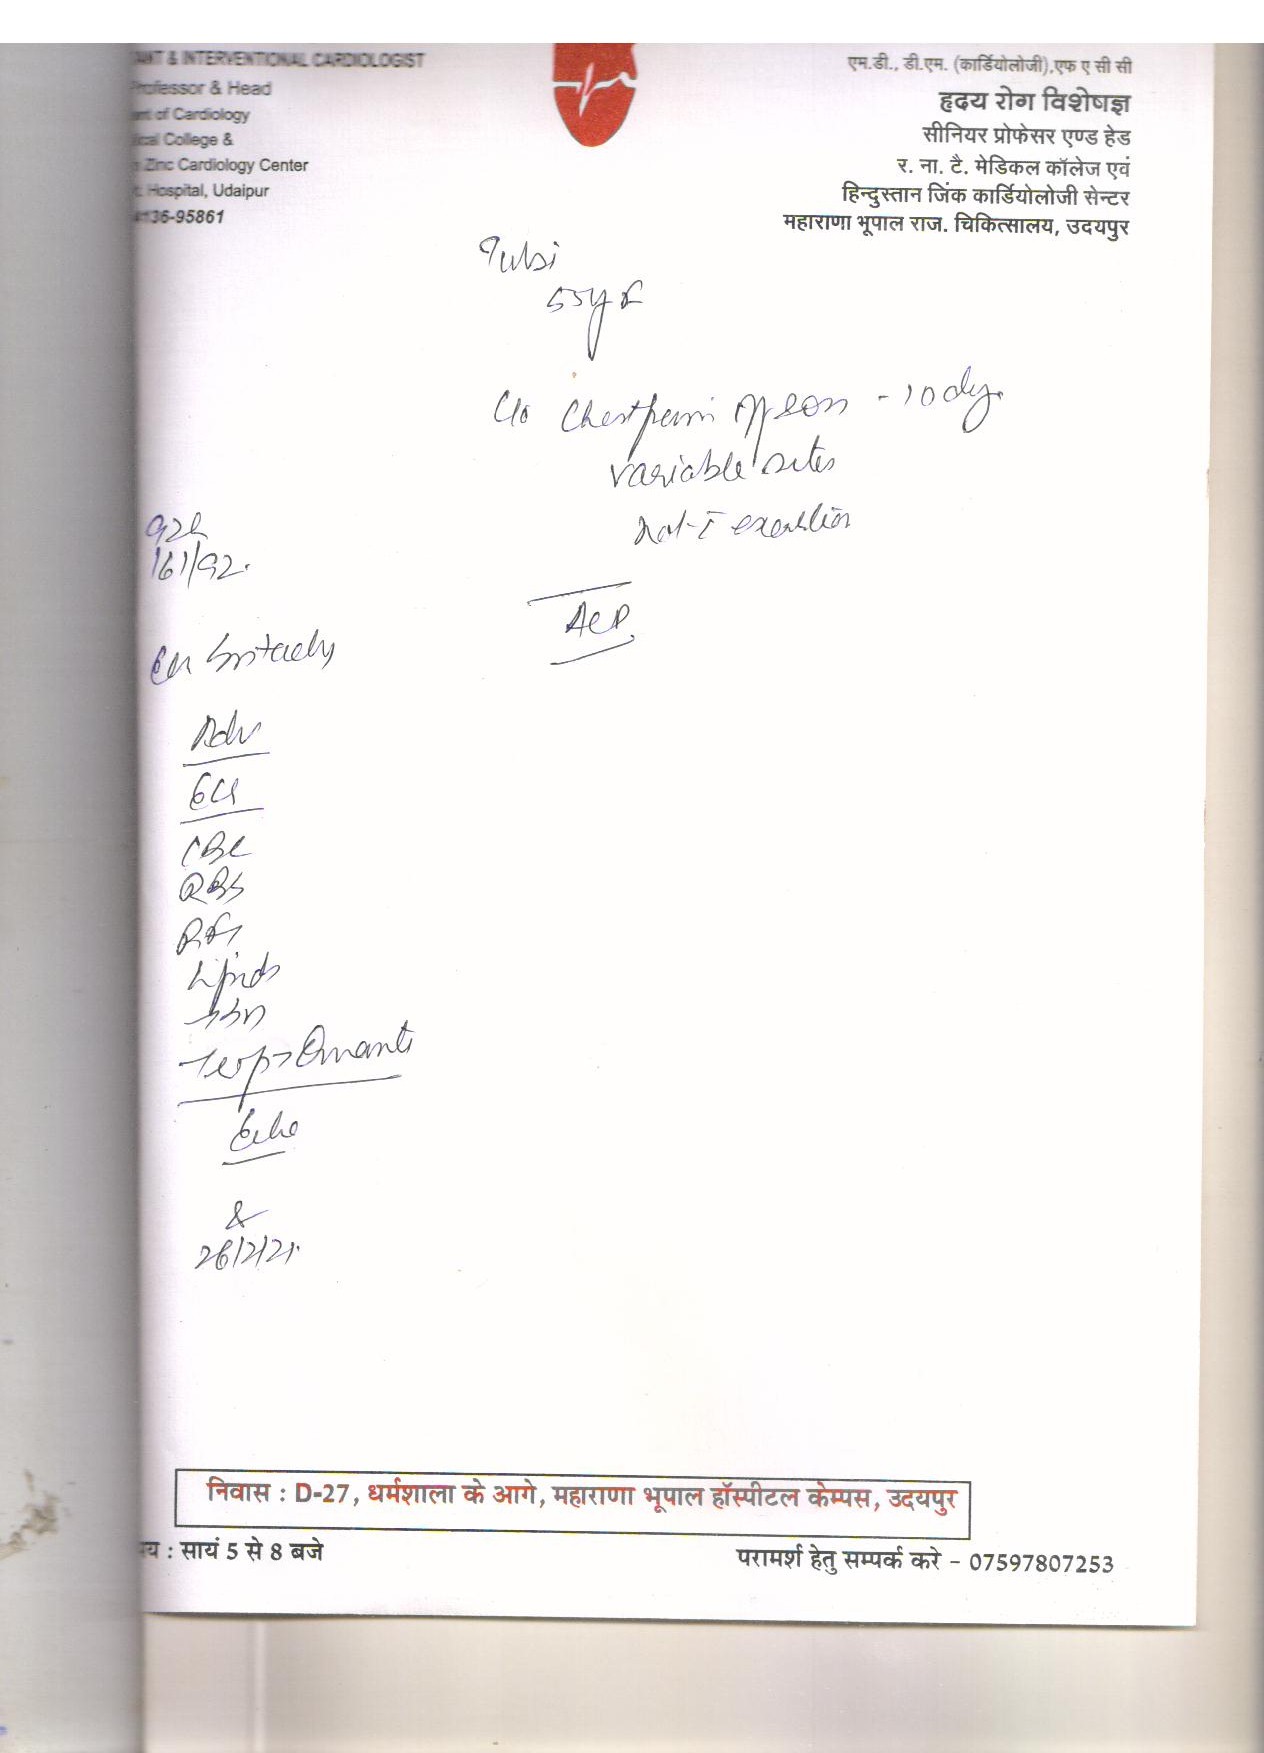 ANT & INTERVENTIONAL CARDIOLOGIST
Professor & Head
ent of Cardiology
ical College &
Zinc Cardiology Center
Hospital, Udaipur
136-95861
एम.डी., डी.एम. (कार्डियोलोजी),एफ ए सी सी
हृदय रोग विशेषज्ञ
सीनियर प्रोफेसर एण्ड हेड
र. ना. टै. मेडिकल कॉलेज एवं
हिन्दुस्तान जिंक कार्डियोलोजी सेन्टर
महाराणा भूपाल राज. चिकित्सालय, उदयपुर
Tulsi
55y F
C/o Chestpain off & on - 10 day.
variable sites
not c exertion
92
161/92.
ACP
Adv
ECG
CBC
RBS
RFT
Lipids
Trop > Quanti
Echo
26/2/21.
निवास : D-27, धर्मशाला के आगे, महाराणा भूपाल हॉस्पीटल केम्पस, उदयपुर
य : सायं 5 से 8 बजे
परामर्श हेतु सम्पर्क करे - 07597807253